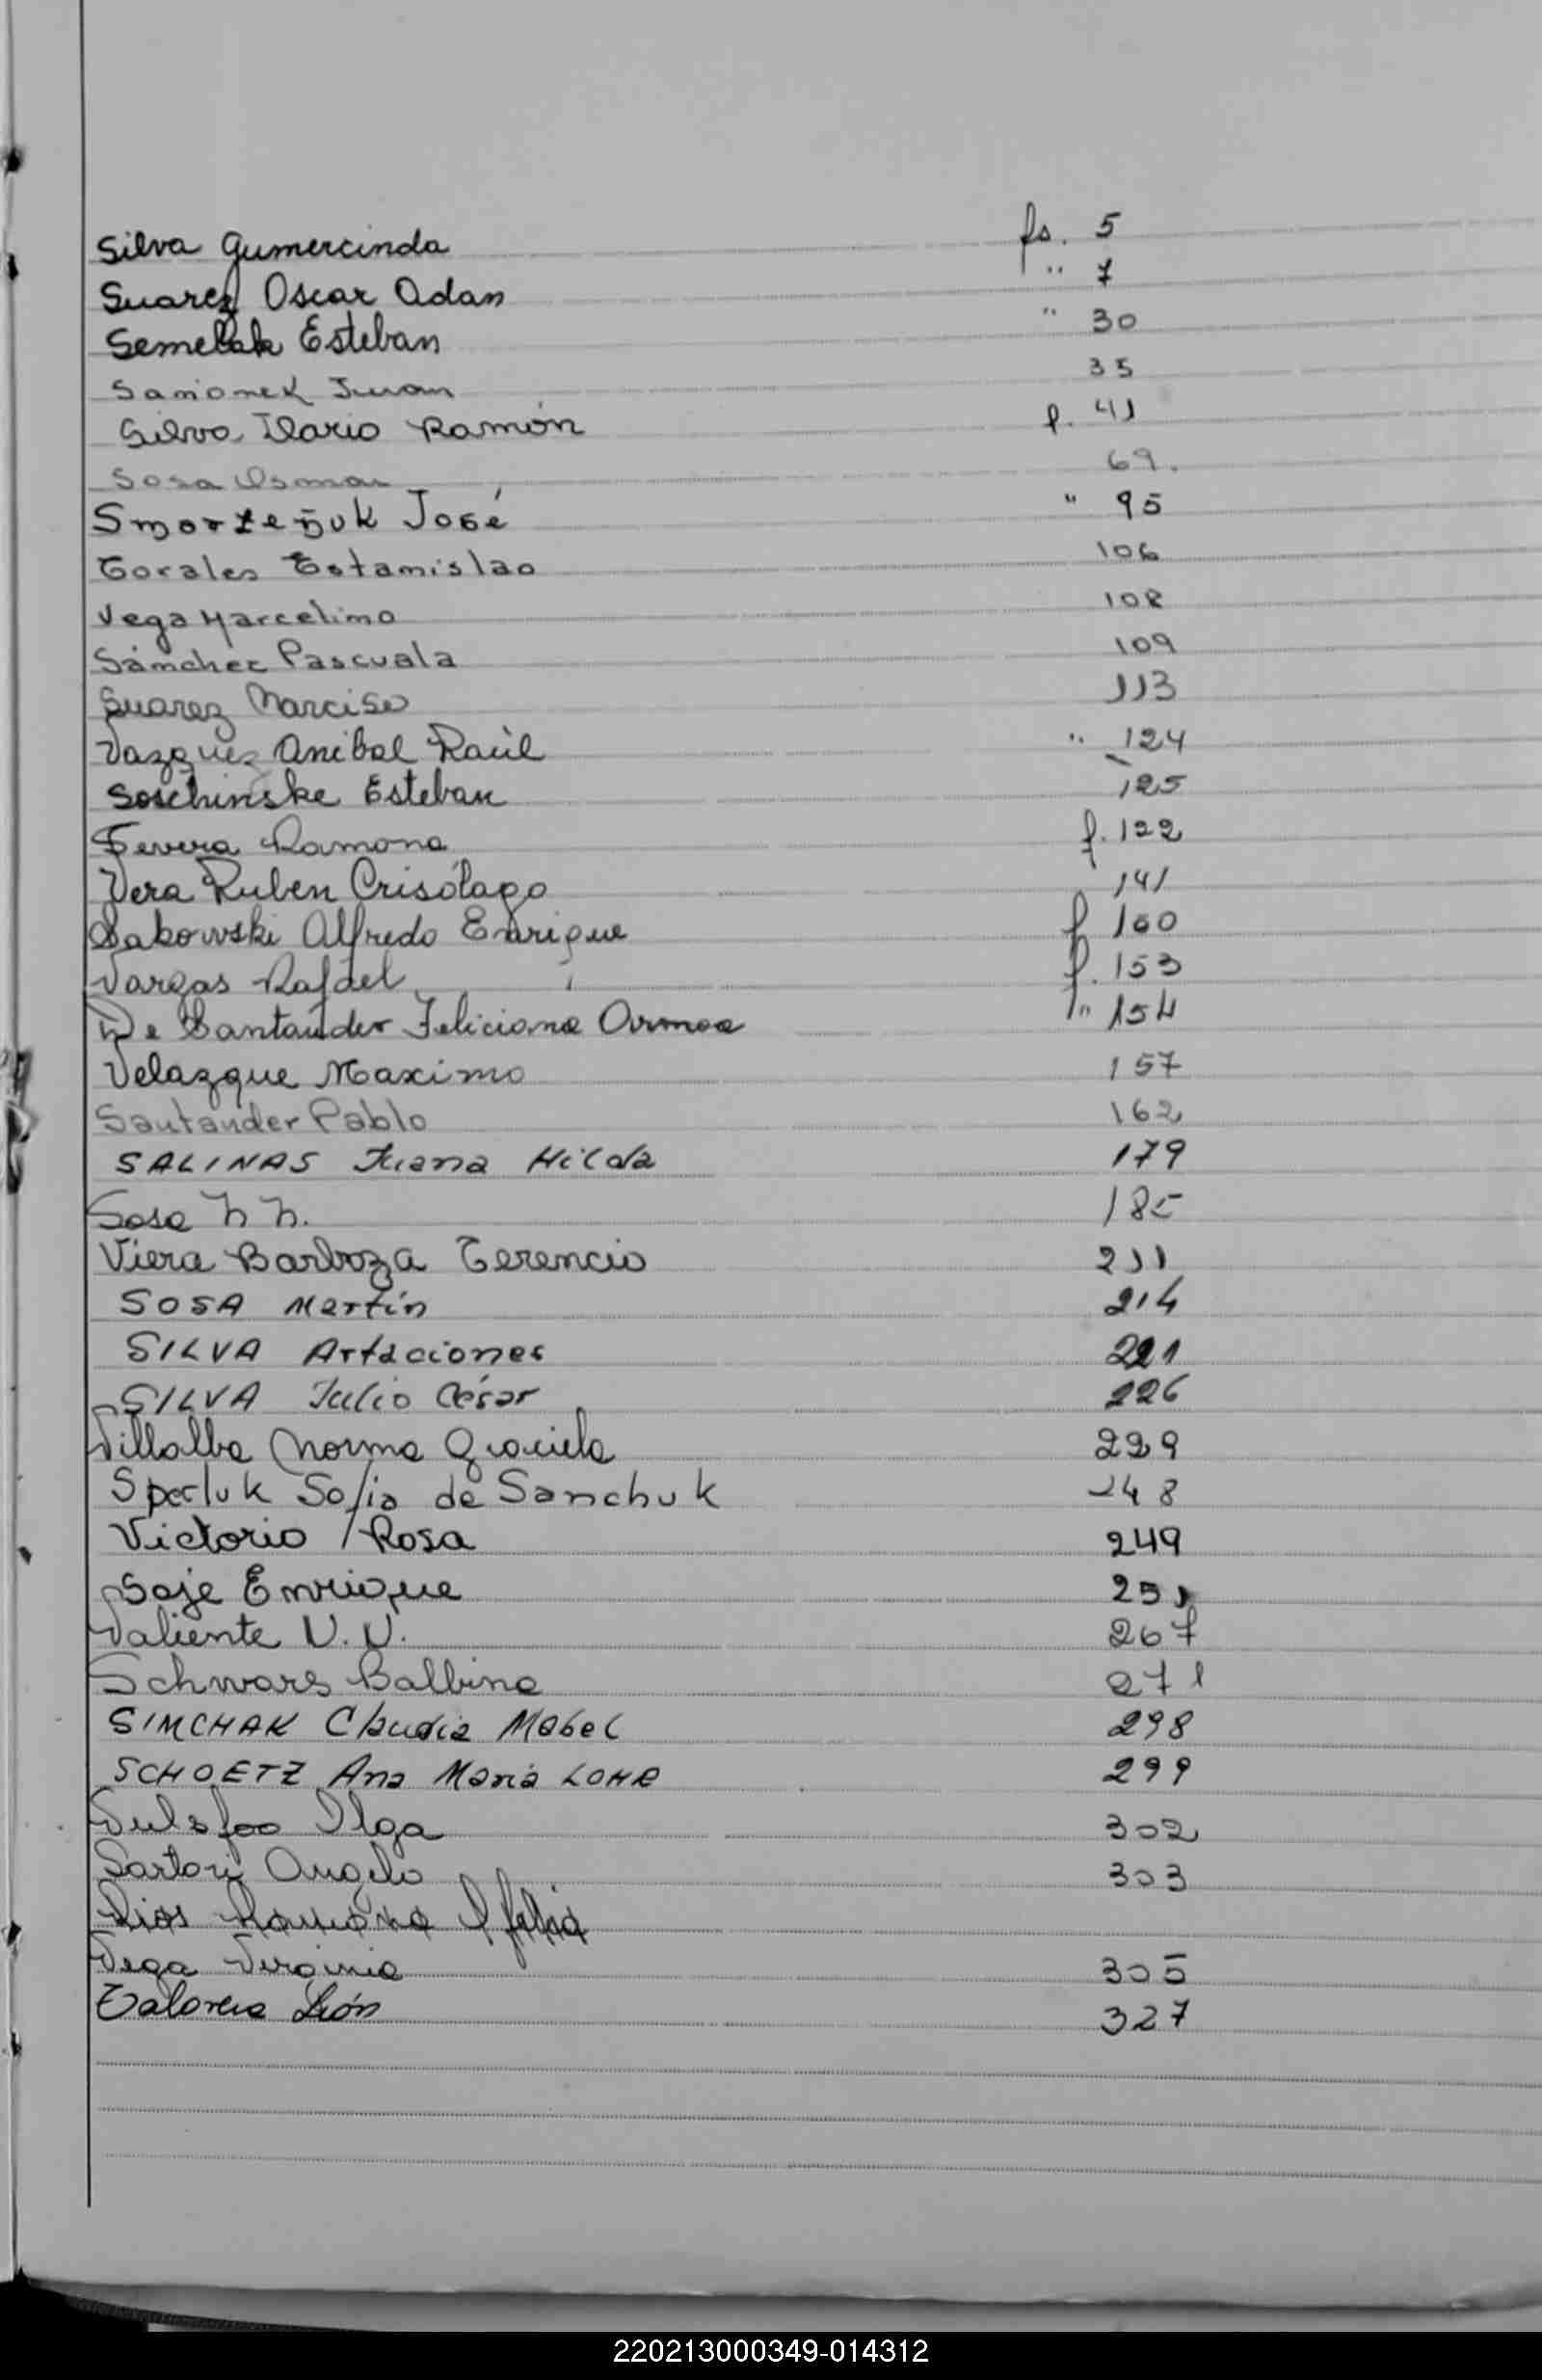 Silva Gumercinda fs. 5
Suarez Oscar Adan " 7
Semelak Esteban " 30
Samonek Juan 35
Silva Ilario Ramón f. 41
Sosa Osmar 69.
José " 95
Corales Estamislao 106
Vega Marcelino 108
Sánchez Pascuala 109
Suarez Narciso 113
Vazquez Anibal Raúl " 124
Soschinske Esteban 125
Ramona f. 122
Vera Ruben Crisólago 141
Sakowski Alfredo Enrique f 160
Vargas Rafael f. 153
De Santander Feliciana Armoa " 154
Velazque Maximo 157
Santander Pablo 162
SALINAS Juana Hilda 179
Sosa N N. 185
Viera Barboza Terencio 211
SOSA Martín 214
SILVA Artaciones 221
SILVA Julio César 226
Villalba Norma Graciela 229
Sperluk Sofia de Sanchuk 248
Victorio Rosa 249
Soje Enrique 251
Valiente N. N. 267
Schwars Balbina 271
SIMCHAK Claudia Mabel 298
SCHOETZ Ana María LOHR 299
Ilga 302
Sartori Angelo 303
Rios Ramona
Vega Virginia 305
León 327
220213000349-014312